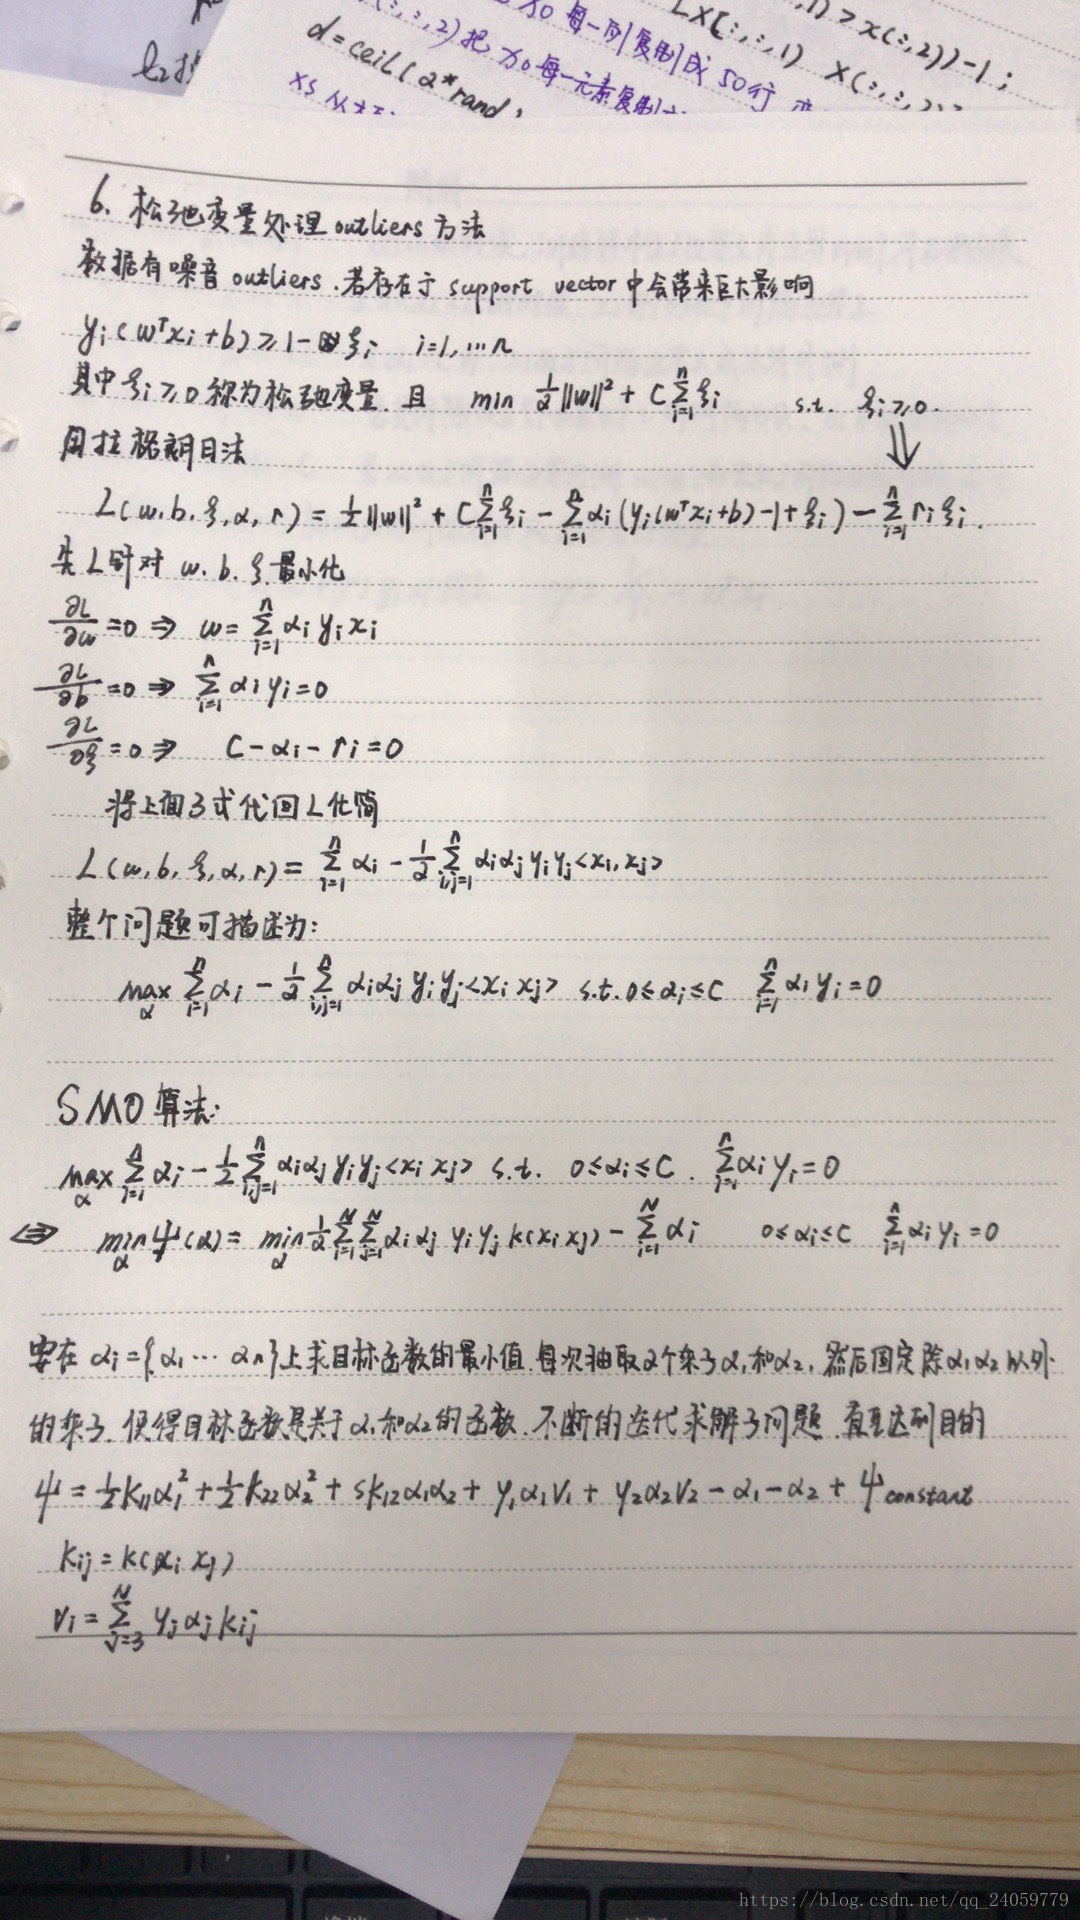 LX(:,:,1) X(:,:,2)
,1)>x(:,2))-1;
(:,:,2)把 x0每一元素复制
x0每一列复制成50行
d=ceil(2*rand,
6. 松弛变量处理 outliers 方法
数据有噪音 outliers.若存在于 support vector 中会带来巨大影响
yi(wᵀxi+b)≥1-ξi i=1,…n
其中 ξi≥0 称为松弛变量.且 min ½||w||² + C∑ⁿᵢ₌₁ξi s.t. ξi≥0.
用拉格朗日法 ⇓
L(w.b.ξ,α,r)=½||w||²+C∑ⁿᵢ₌₁ξi-∑ⁿᵢ₌₁αi(yi(wᵀxi+b)-1+ξi)-∑ⁿᵢ₌₁riξi.
先L针对 w.b.ξ.最小化
∂L/∂w=0 ⇒ w=∑ⁿᵢ₌₁αi yi xi
∂L/∂b=0 ⇒ ∑ⁿᵢ₌₁αi yi=0
∂L/∂ξ=0 ⇒ C-αi-ri=0
将上面3式代回L化简
L(w,b,ξ,α,r)=∑ⁿᵢ₌₁αi-½∑ⁿᵢ,ⱼ₌₁αiαj yi yj<xi,xj>
整个问题可描述为:
max_α ∑ⁿᵢ₌₁αi-½∑ⁿᵢ,ⱼ₌₁αiαj yi yj<xi xj> s.t. 0≤αi≤C ∑ⁿᵢ₌₁αi yi=0
SMO 算法:
max_α ∑ⁿᵢ₌₁αi-½∑ⁿᵢ,ⱼ₌₁αiαj yi yj<xi xj> s.t. 0≤αi≤C. ∑ⁿᵢ₌₁αi yi=0
⇔ min_α Ψ(α)=min_α ½∑ᴺᵢ₌₁∑ᴺⱼ₌₁αi αj yi yj k(xi xj)-∑ᴺᵢ₌₁αi 0≤αi≤C ∑ⁿᵢ₌₁αi yi=0
要在 αi={α1…αn}上求目标函数的最小值.每次抽取2个乘子α1和α2,然后固定除α1α2以外
的乘子.使得目标函数是关于α1和α2的函数.不断的迭代求解子问题.直至达到目的
Ψ=½k11α1²+½k22α2²+sk12α1α2+y1α1v1+y2α2v2-α1-α2+Ψconstant
kij=k(xi xj)
vi=∑ᴺⱼ₌₃ yjαjkij
https://blog.csdn.net/qq_24059779